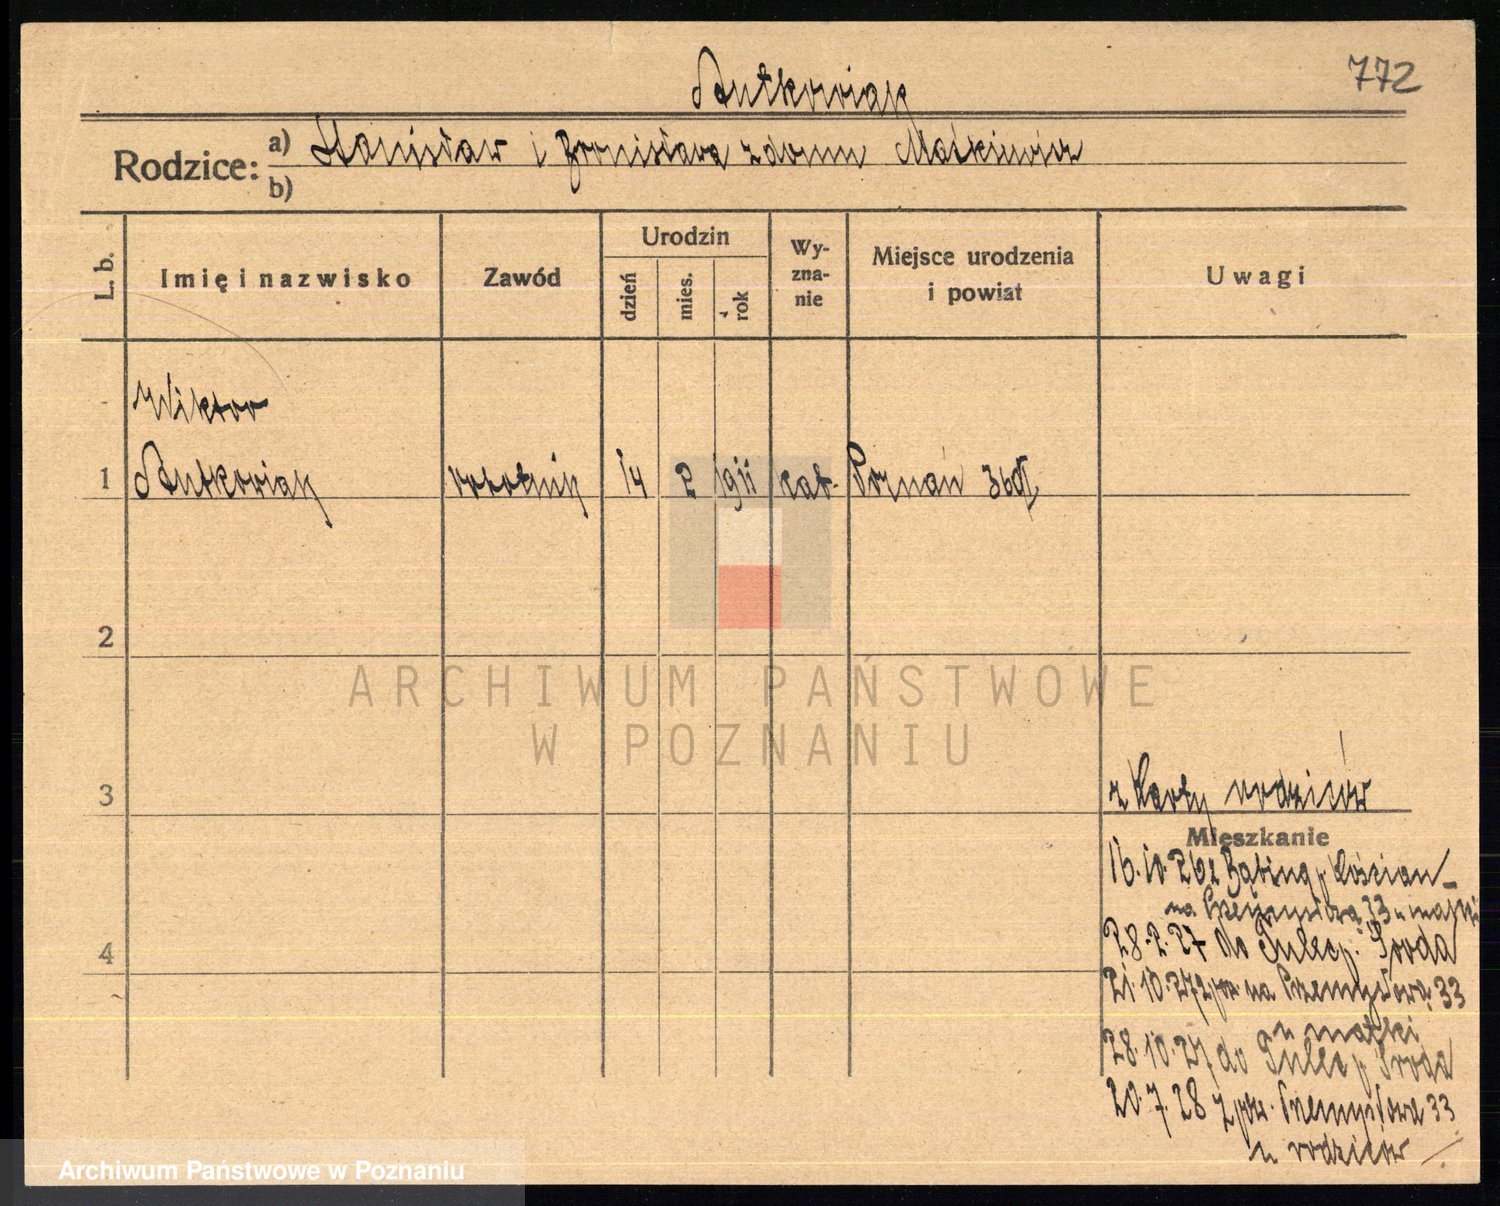 772
Rutkowiak
Rodzice: a) Stanisław i Bronisława z domu Maćkiewicz
b)
L. b.
Imię i nazwisko
Zawód
Urodzin
dzień
mies.
rok
Wy-
zna-
nie
Miejsce urodzenia
i powiat
Uwagi
Wiktor
1 Rutkowiak robotnik 14 2 1911 kat. Poznań
2
ARCHIWUM PAŃSTWOWE
W POZNANIU
3
z karty rodziców
Mieszkanie
16.10.26 z p. Kościan
na Przemysłową 33 u matki
4
28.2.27 do Tulec p. Środa
21.10.27 z na Przemysłową 33
u matki
28.10.27 do Tulec p. Środa
20.7.28 z Przemysłowa 33
u rodziców
Archiwum Państwowe w Poznaniu